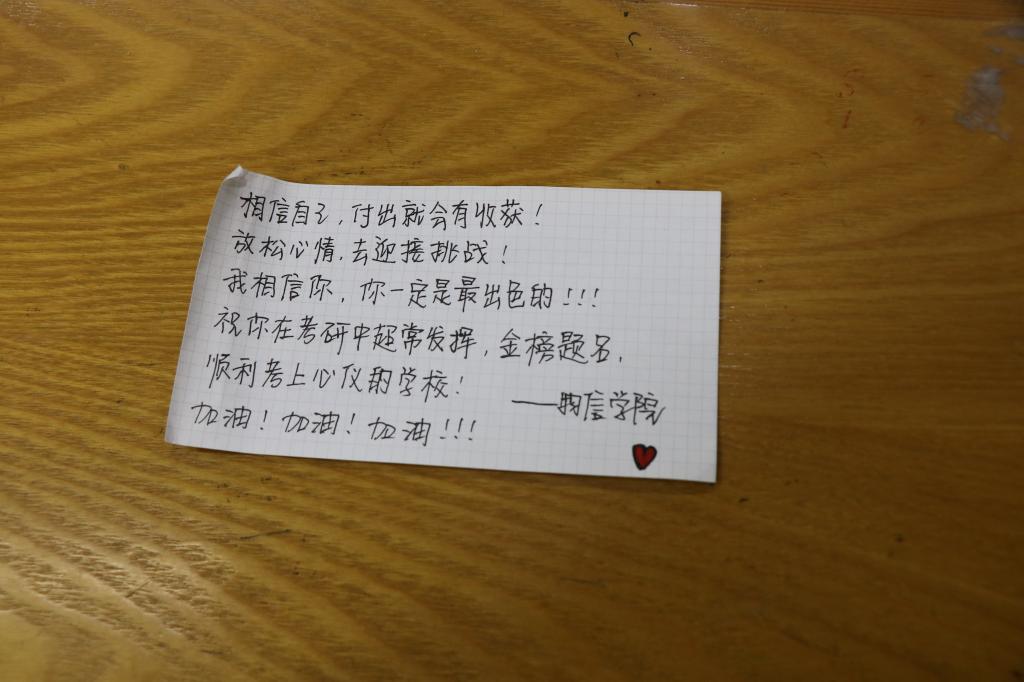 相信自己，付出就会有收获！
放松心情，去迎接挑战！
我相信你，你一定是最出色的！！！
祝你在考研中超常发挥，金榜题名，
顺利考上心仪的学校！
——物信学院
加油！加油！加油！！！